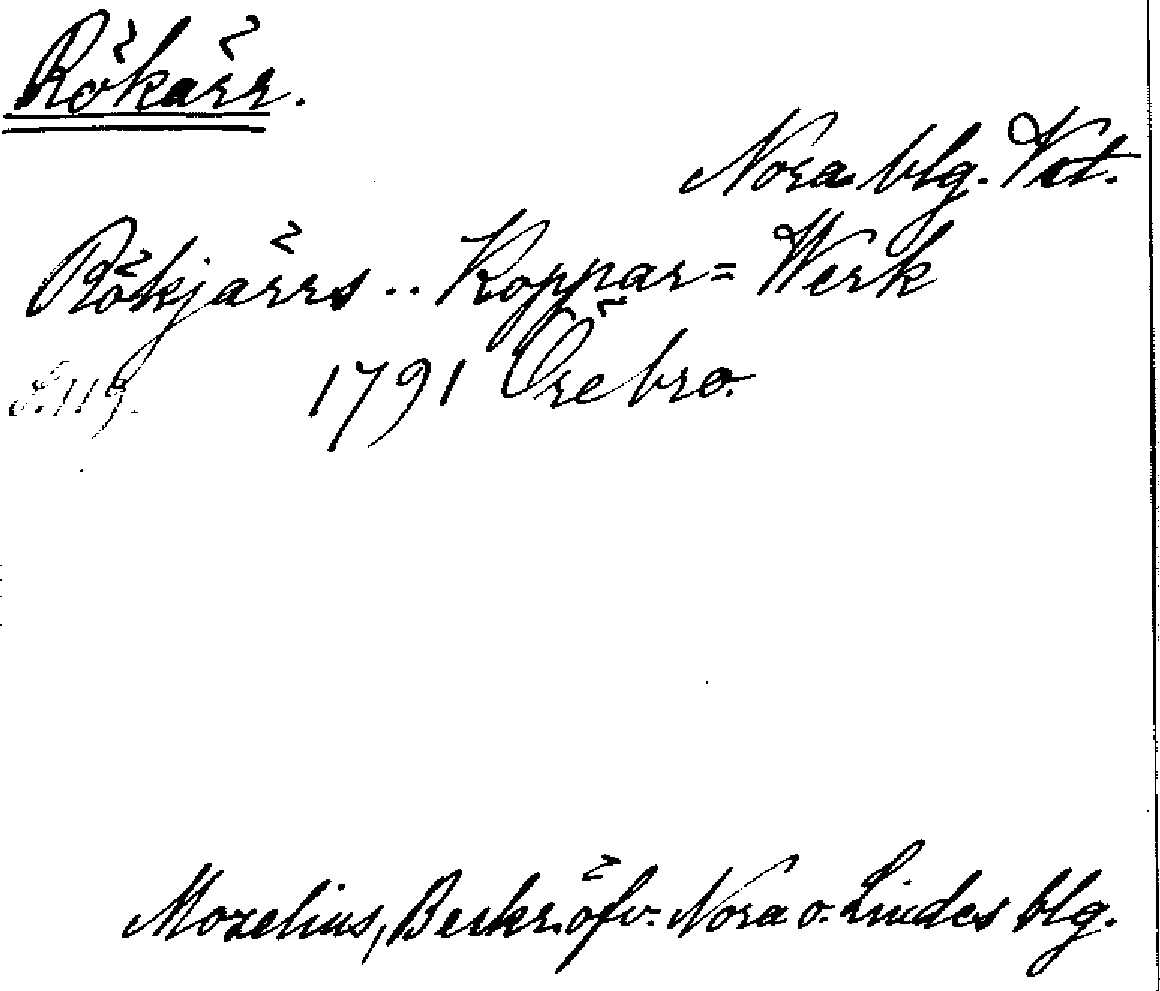 Rökärr.
Nora blg. Vst.
Rökjärrs .. Koppar=Werk
S. 119. 1791 Örebro.
Mozelius, Beskr. öfv. Nora o. Lindes blg.